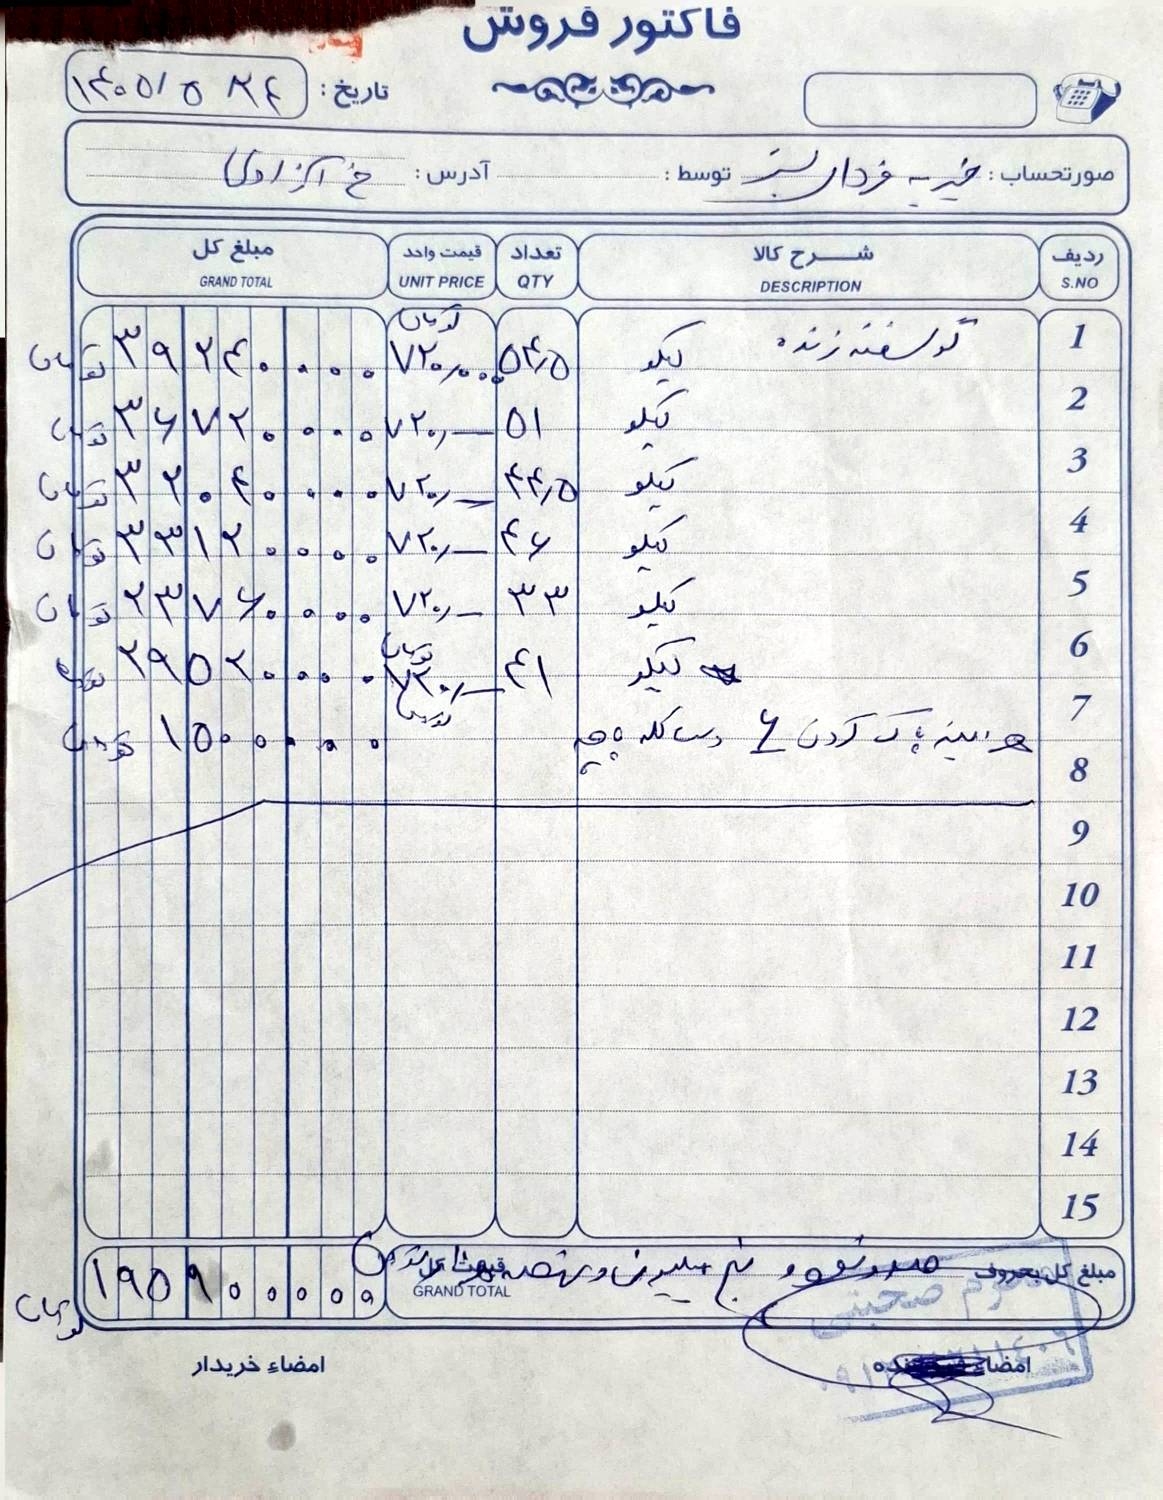 فاکتور فروش
تاریخ : ۱۴۰۵/۵/۲۴
صورتحساب : خیریه فردای سبز توسط : آدرس : خ آزادی
ردیف شرح کالا تعداد قیمت واحد مبلغ کل
S.NO DESCRIPTION QTY UNIT PRICE GRAND TOTAL
1 گوسفند زنده کیلو ۵۴٫۵ ۷۲۰٫۰۰۰ تومان ۳۹۲۴۰۰۰۰ تومان
2 کیلو ۵۱ ۷۲۰٫— ۳۶۷۲۰۰۰۰ تومان
3 کیلو ۴۴٫۵ ۷۲۰٫— ۳۲۰۴۰۰۰۰ تومان
4 کیلو ۴۶ ۷۲۰٫— ۳۳۱۲۰۰۰۰ تومان
5 کیلو ۳۳ ۷۲۰٫— ۲۳۷۶۰۰۰۰ تومان
6 کیلو ۴۱ ۷۲۰٫— تومان ۲۹۵۲۰۰۰۰ تومان
7 هزینه پاک کردن ۶ دست کله پاچه ۱۵۰۰۰۰۰ تومان
8
9
10
11
12
13
14
15
مبلغ کل بحروف صد و نود و پنج میلیون و نهصد هزار تومان
GRAND TOTAL ۱۹۵۹۰۰۰۰۰ تومان
صحبتی
امضاء امضاء خریدار